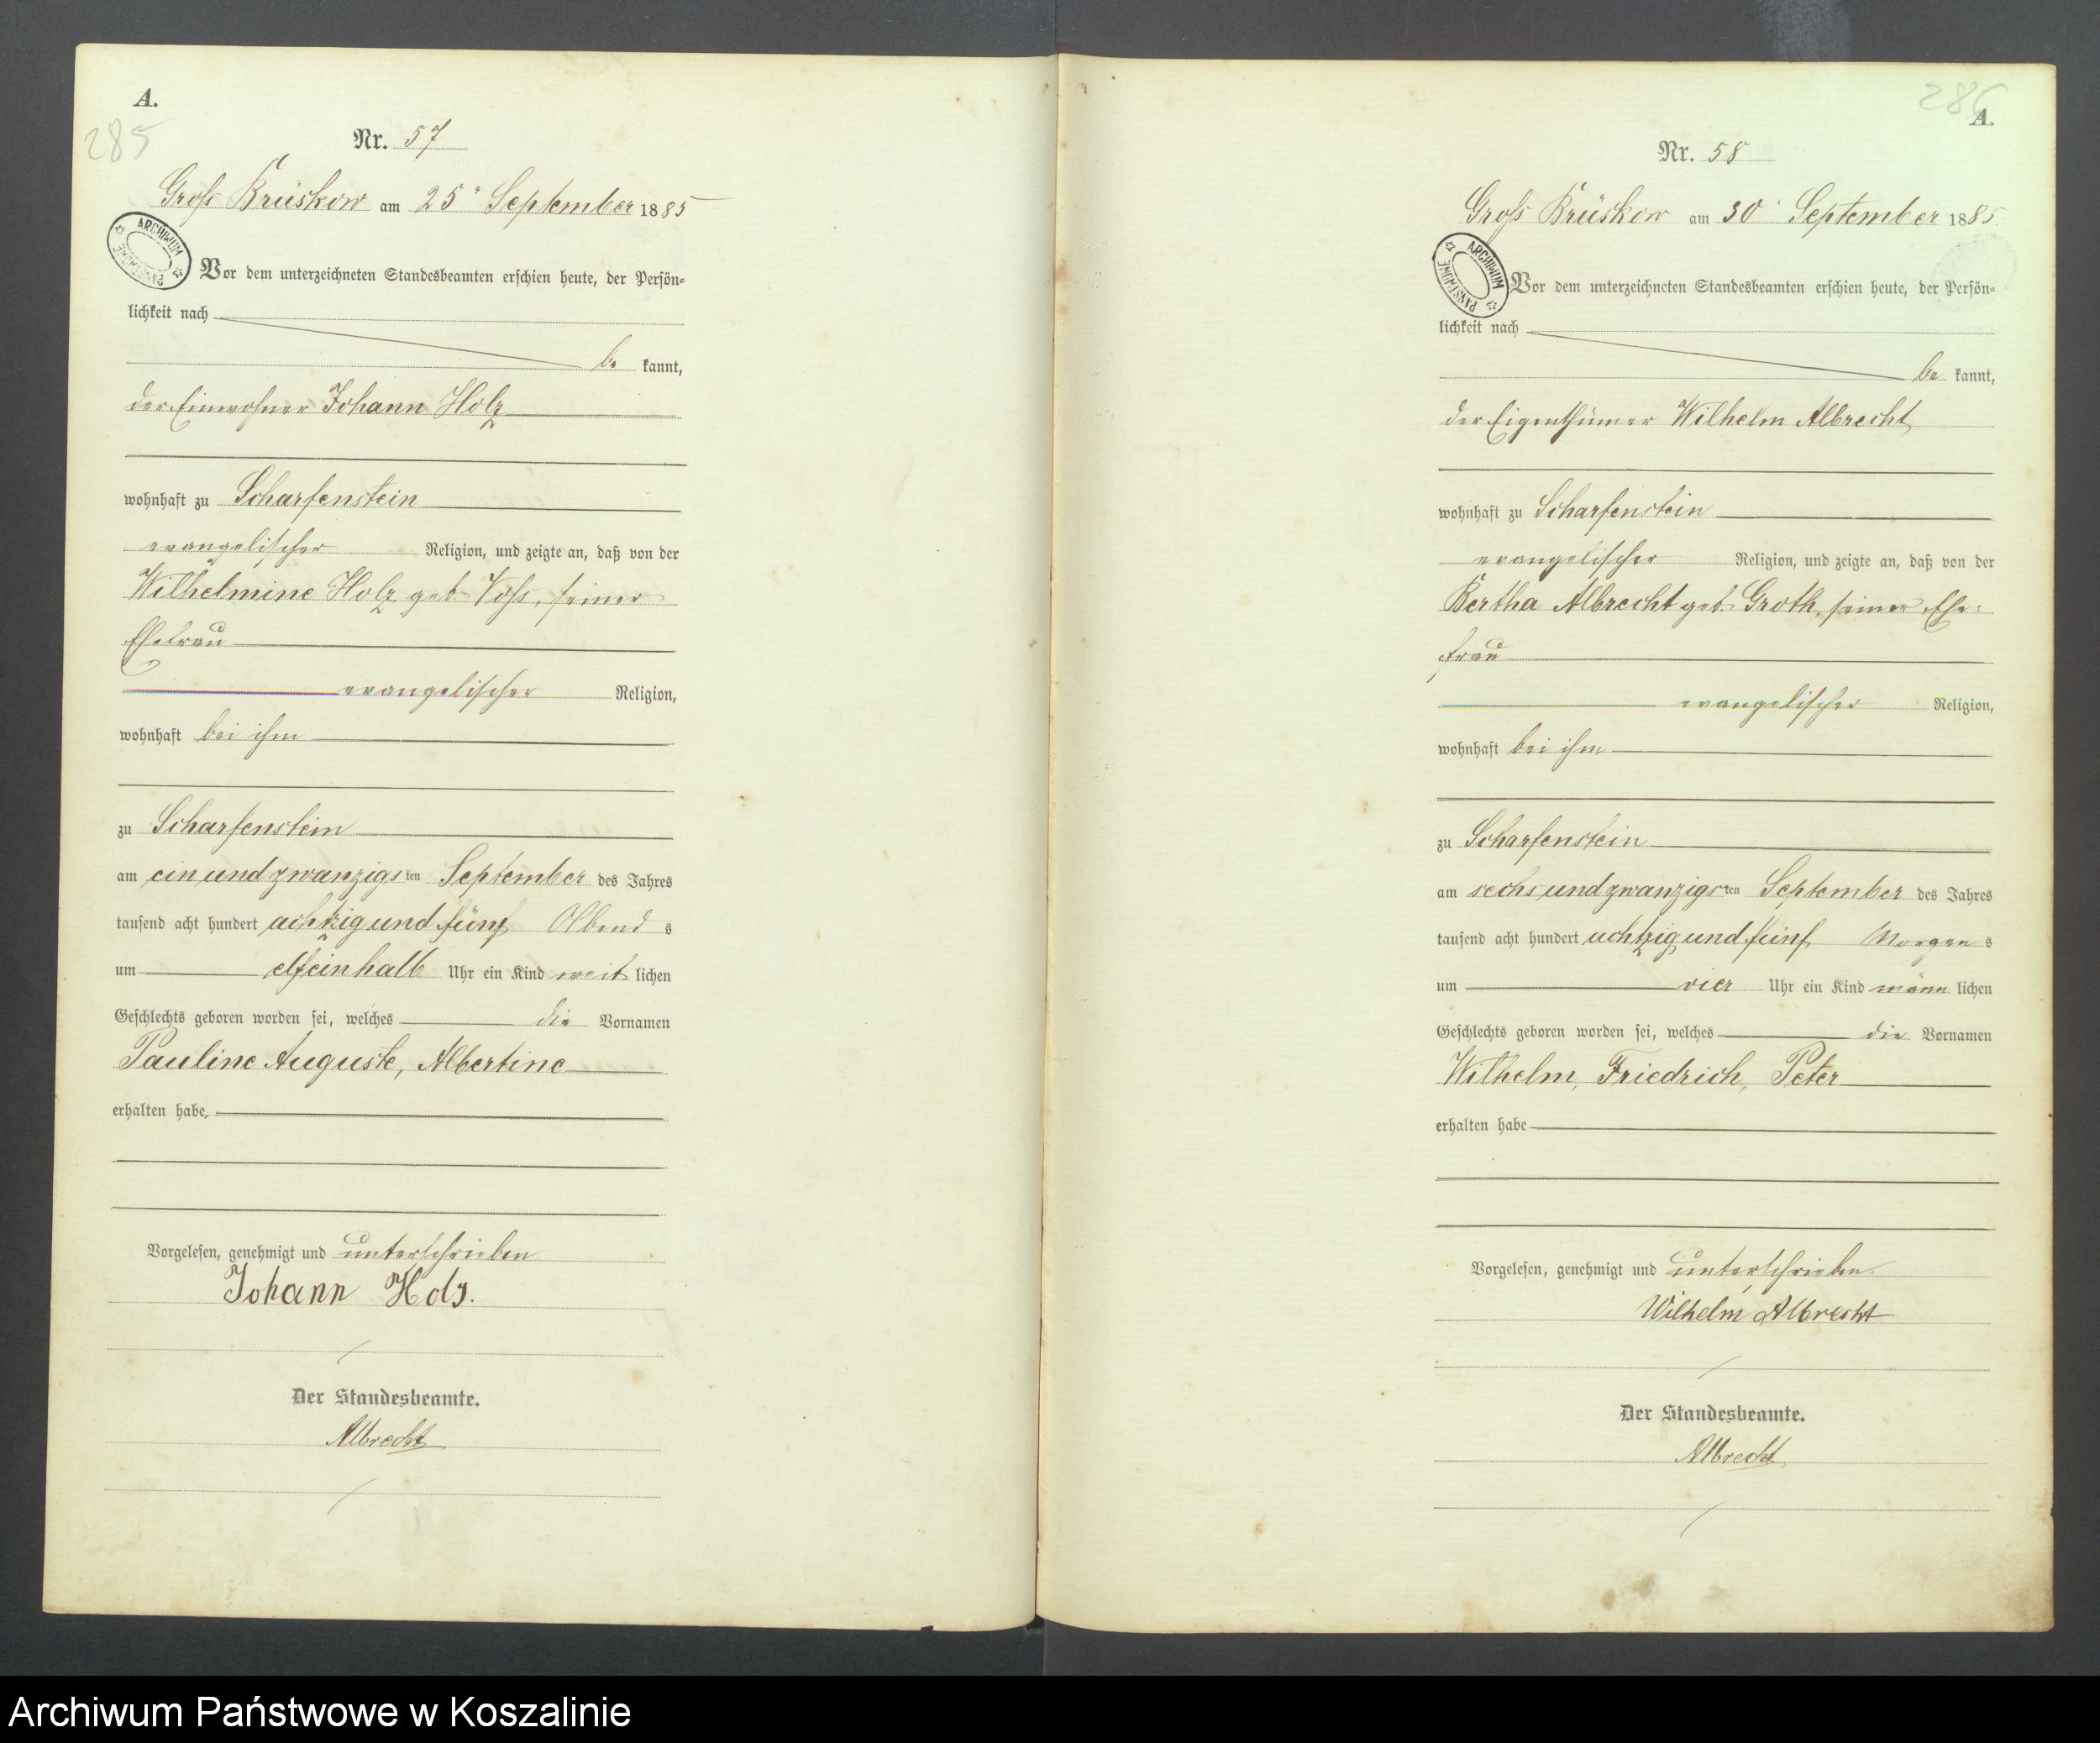 A.
285
Nr. 57
Groß Brüskow am 25" September 1885
ARCHIWUM PAŃSTWOWE
Vor dem unterzeichneten Standesbeamten erschien heute, der Persön-
lichkeit nach
be kannt,
der Einwohner Johann Holz
wohnhaft zu Scharfenstein
evangelischer Religion, und zeigte an, daß von der
Wilhelmine Holz geb Voß, seiner
Ehefrau
evangelischer Religion,
wohnhaft bei ihm
zu Scharfenstein
am ein und zwanzigsten September des Jahres
tausend acht hundert achtzig und fünf Abend s
um elfeinhalb Uhr ein Kind weib lichen
Geschlechts geboren worden sei, welches die Vornamen
Pauline Auguste, Albertine
erhalten habe.
Vorgelesen, genehmigt und unterschrieben
Johann Holz.
Der Standesbeamte.
Albrecht
286
A.
Nr. 58
Groß Brüskow am 30 September 1885
ARCHIWUM PAŃSTWOWE
Vor dem unterzeichneten Standesbeamten erschien heute, der Persön-
lichkeit nach
be kannt,
der Eigenthümer Wilhelm Albrecht
wohnhaft zu Scharfenstein
evangelischer Religion, und zeigte an, daß von der
Bertha Albrecht geb. Groth, seiner Ehe-
frau
evangelischer Religion,
wohnhaft bei ihm
zu Scharfenstein
am sechs und zwanzigsten September des Jahres
tausend acht hundert achtzig und fünf Morgen s
um vier Uhr ein Kind männ lichen
Geschlechts geboren worden sei, welches die Vornamen
Wilhelm, Friedrich, Peter
erhalten habe
Vorgelesen, genehmigt und unterschrieben.
Wilhelm Albrecht
Der Standesbeamte.
Albrecht
Archiwum Państwowe w Koszalinie